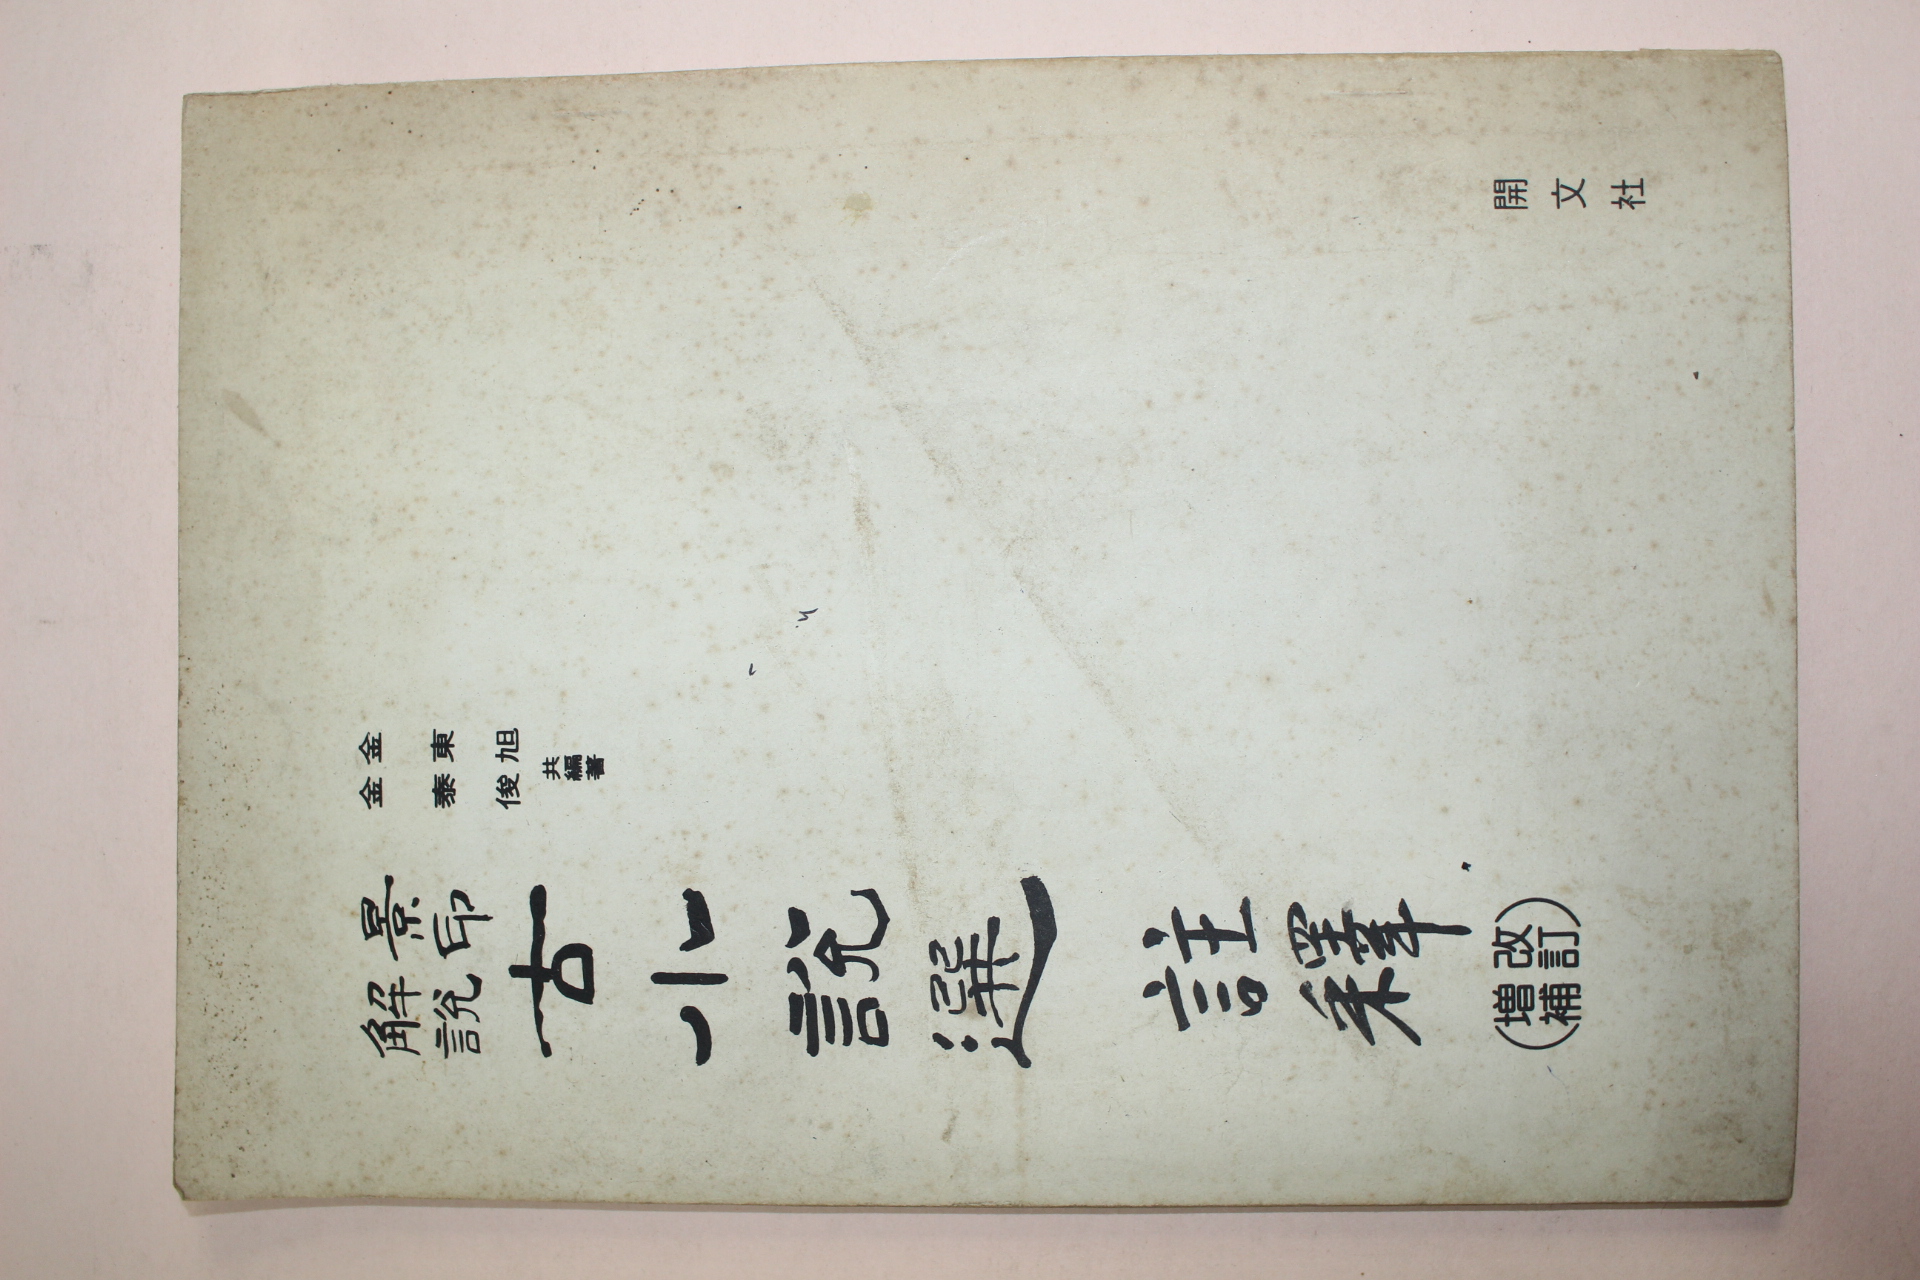 景印
解說
古小說選 註釋
(改訂
増補)
金東旭
金泰俊
共編著
開文社